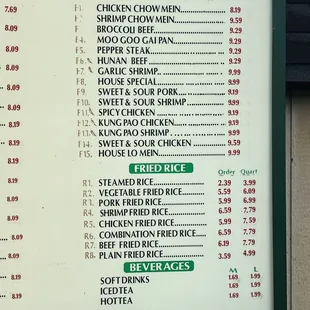 7.69
8.09
8.09
8.09
8.09
8.09
8.09
8.09
8.09
8.09
8.09
8.09
8.09
8.09
8.09
F1. CHICKEN CHOW MEIN 8.19
F SHRIMP CHOW MEIN 9.59
F BROCCOLI BEEF 9.29
F4. MOO GOO GAI PAN 9.29
F5. PEPPER STEAK 9.29
F6. HUNAN BEEF 9.29
F7. GARLIC SHRIMP 9.99
F8. HOUSE SPECIAL 9.99
F9. SWEET & SOUR PORK 9.19
F10. SWEET & SOUR SHRIMP 9.99
F11. SPICY CHICKEN 9.19
F12. KUNG PAO CHICKEN 9.19
F13. KUNG PAO SHRIMP 9.99
F14. SWEET & SOUR CHICKEN 9.59
F15. HOUSE LO MEIN 9.99
FRIED RICE Order Quart
R1. STEAMED RICE 2.39 3.99
R2. VEGETABLE FRIED RICE 5.59 6.99
R3. PORK FRIED RICE 5.99 6.99
R4. SHRIMP FRIED RICE 6.59 7.79
R5. CHICKEN FRIED RICE 5.99 7.59
R6. COMBINATION FRIED RICE 6.59 7.79
R7. BEEF FRIED RICE 6.19 7.79
R8. PLAIN FRIED RICE 3.59 4.99
BEVERAGES M L
SOFT DRINKS 1.69 1.99
ICED TEA 1.69 1.99
HOT TEA 1.69 1.99